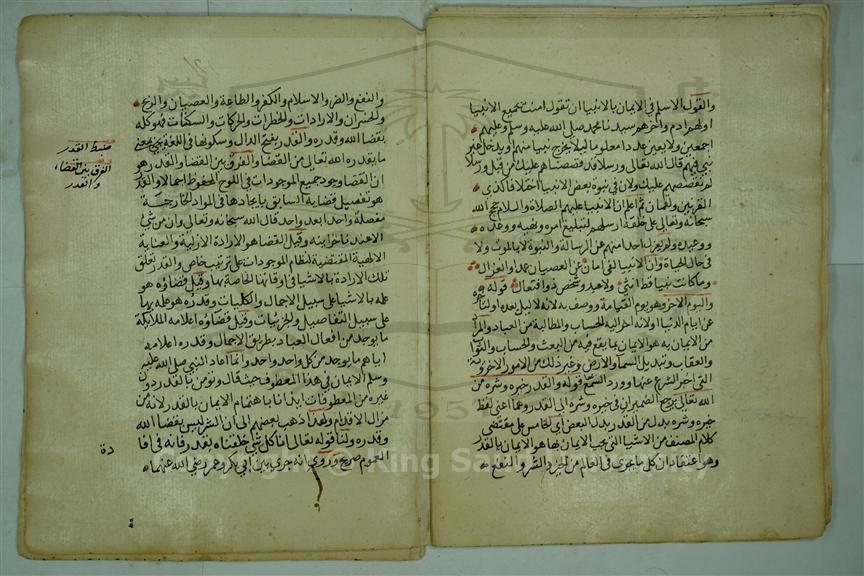 والقول الاسلم في الايمان بالانبيا ان تقول امنت بجميع الانبيا
اولهم ادم واخرهم سيدنا محمد صلى الله عليه وسلم وعليهم
اجمعين ولا يعين عددا معلوما ليلا يخرج نبيا منهم او يدخل غير
نبي فيهم قال الله تعالى ورسلا قد قصصناهم عليك من قبل ورسلا
لم نقصصهم عليك ولان في نبوة بعض الانبيا اختلافا كذى
القرنين ولقمان ثم اعلم ان الانبيا عليهم الصلاة والسلام حجج الله
سبحانه وتعالى على خلقه ارسلهم لتبليغ امره ونهيه ووعده
ووعيده ولم يعزل احد منهم عن الرسالة والنبوة لا بالموت ولا
في حال الحياة وان الانبيا لفي امان عن العصيان عمدا والعزال
وما كانت نبيا قط انثى ولا عبد وشخص ذو افتعال قوله
واليوم الاخر وهو يوم القيمة ووصف به لانه لا ليل بعده او لتاخره
عن ايام الدنيا ولانه اخر اليه الحساب والمطالبة من العباد والمراد
من الايمان به هو الايمان بما يقع فيه من البعث والحساب والثواب
والعقاب وتبديل السما والارض وغير ذلك من الامور الاخروية
التي اخبر الشرع عنها وورد السمع قوله والقدر خيره وشره من
الله تعالى يرجع الضميران في خيره وشره الى القدر وهما اعنى لفظ
خيره وشره بدل من القدر بدل البعض اي الخامس على مقتضى
كلام المصنف من الاشيا التي يجب الايمان بها هو الايمان بالقدر
وهو اعتقاد ان كل ما يجرى في العالم من الخير والشر والنفع
والنفع والضر والاسلام والكفر والطاعة والعصيان والربح
والخسران والارادات والخطرات والحركات والسكنات فهو كله
بقضا الله وقدره والقدر بفتح الدال وسكونها في اللغة يجي بمعنى
ما يقدره الله تعالى من القضا والفرق بين القضا والقدر هو
ان القضا وجود جميع الموجودات في اللوح المحفوظ اجمالا والقدر
هو تفصيل قضايه السابق بايجادها في المواد الخارجية
مفصلة واحدا بعد واحد قال الله سبحانه وتعالى وان من شي
الا عندنا خزاينه وقيل القضا هو الارادة الازلية والعناية
الالهية المقتضية لنظام الموجودات على ترتيب خاص والقدر تعلق
تلك الارادة بالاشيا في اوقاتها الخاصة بها وقيل قضاؤه هو
علمه بالاشيا على سبيل الاجمال والكليات وقدره هو علمه بها
على سبيل التفاصيل والجزييات وقيل قضاؤه اعلامه الملايكة
ما يوجد من افعال العباد بطريق الاجمال وقدره اعلامه
اياهم ما يوجد من كل واحد واحد وانما اعاد النبي صلى الله عليه
وسلم الايمان في هذا المعطوف حيث قال ونومن بالقدر دون
غيره من المعطوفات ايذانا باهتمام الايمان بالقدر لانه من
مزال الاقدام ولهذا ذهب بعضهم الى ان الشر ليس بقضا الله
وقدره ولنا قوله تعالى انا كل شي خلقناه بقدر فانه في افا
العموم صريح وروى انه جرى بين ابي بكر وعمر رضي الله عنهما
ضبط القدر
الفرق بين القضاء
والقدر
دة
King Saud
1957